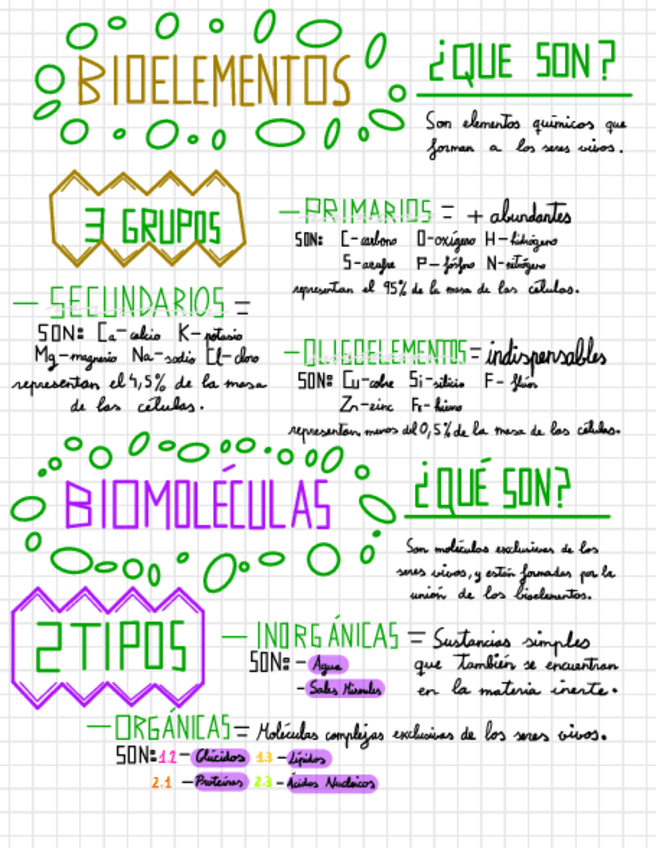 BIOELEMENTOS
¿QUE SON?
Son elementos químicos que
forman a los seres vivos.
3 GRUPOS
— PRIMARIOS = + abundantes
SON: C-carbono O-oxígeno H-hidrógeno
S-azufre P-fósforo N-nitrógeno
representan el 95% de la masa de las células.
— SECUNDARIOS =
SON: Ca-calcio K-potasio
Mg-magnesio Na-sodio Cl-cloro
representan el 4,5% de la masa
de las células.
— OLIGOELEMENTOS = indispensables
SON: Cu-cobre Si-silicio F-flúor
Zn-zinc Fe-hierro
representan menos del 0,5% de la masa de las células.
BIOMOLÉCULAS
¿QUÉ SON?
Son moléculas exclusivas de los
seres vivos, y están formadas por la
unión de los bioelementos.
2 TIPOS
— INORGÁNICAS = Sustancias simples
que también se encuentran
en la materia inerte.
SON: - Agua
- Sales Minerales
— ORGÁNICAS = Moléculas complejas exclusivas de los seres vivos.
SON: 1.2 - Glúcidos 1.3 - Lípidos
2.1 - Proteínas 2.3 - Ácidos Nucleicos